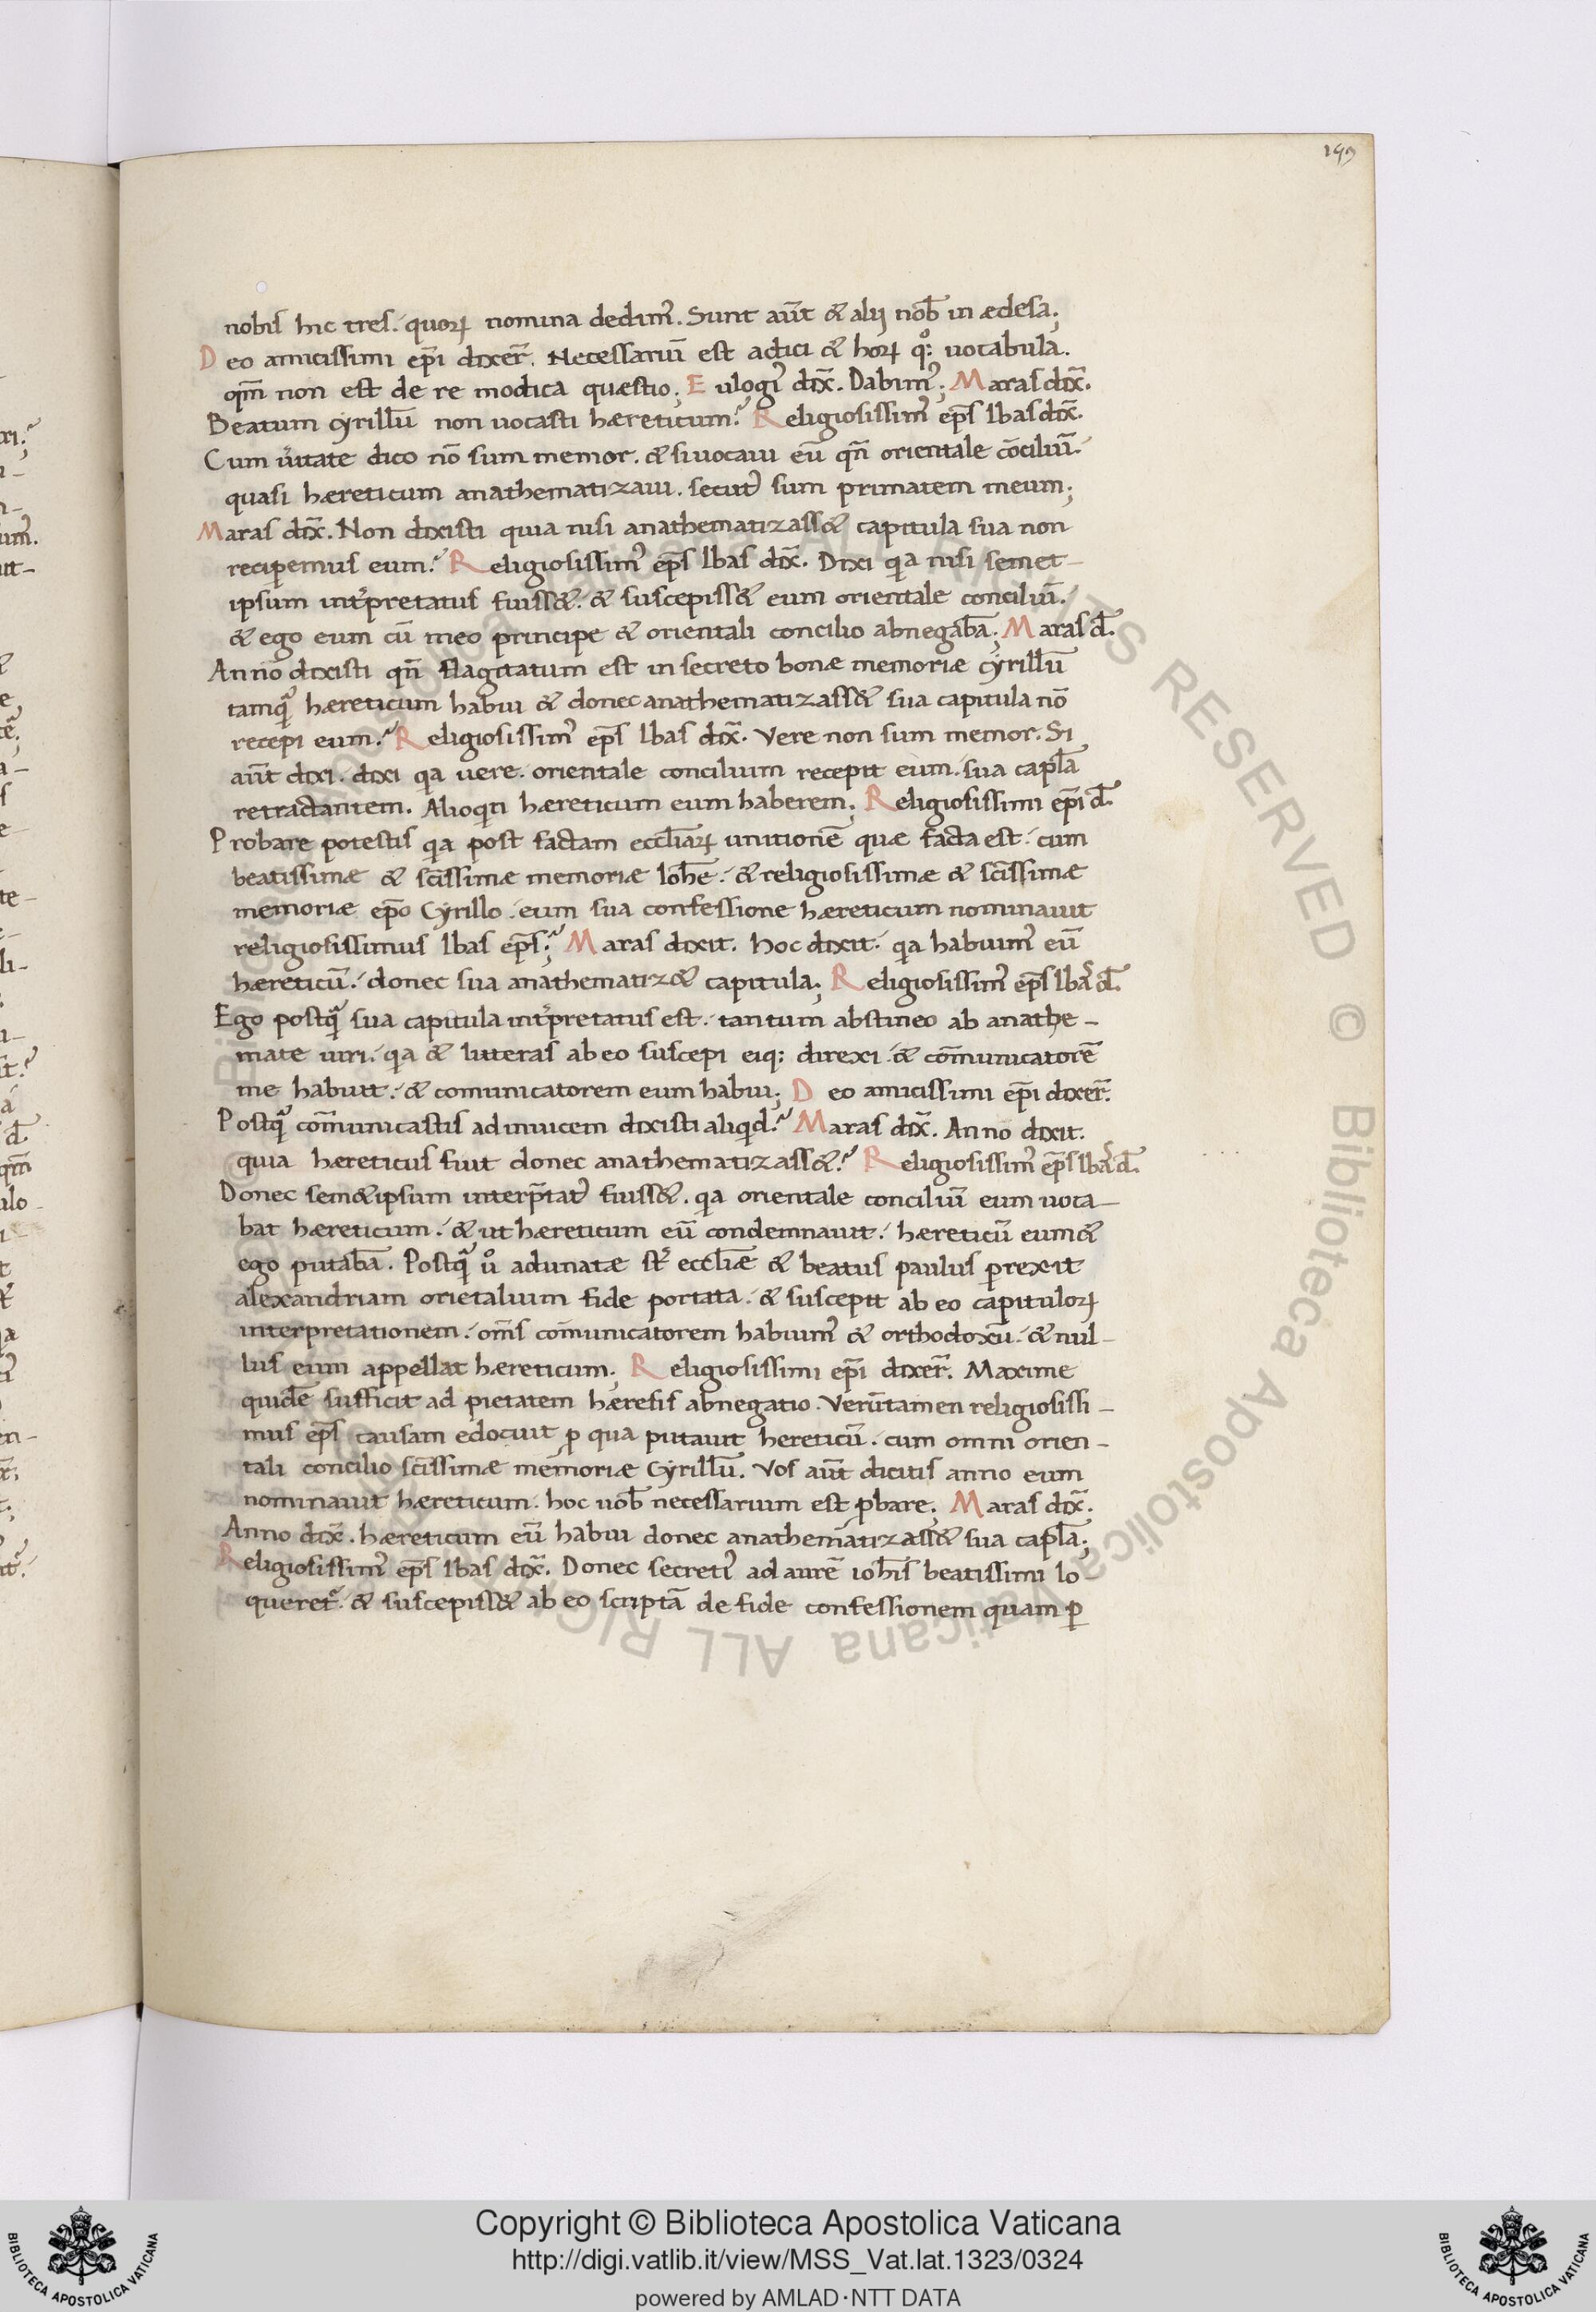 199
nobis hic tres. quoꝝ nomina dedim᷒. Sunt aūt & alij nob̄ in ædesa;
Deo amicissimi ep̄i dixer̄. Necessariū est adici & hoꝝ qͦ: uocabula.
qm̄ non est de re modica quæstio; Eulogi᷒ dix̄. Dabim᷒; Maras dix̄.
Beatum cyrillū non uocasti hæreticum? Religiosissim᷒ ep̄s Ibas dix̄.
Cum u̾itate dico nō sum memor. & si uocaui eū qn̄ orientale cōciliū.
quasi hæreticum anathematizaui. secut᷒ sum primatem meum;
Maras dix̄. Non dixisti quia nisi anathematizass& capitula sua non
recipemus eum? Religiosissim᷒ ep̄s Ibas dix̄. Dixi qa nisi semet-
ipsum int̾pretatus fuiss&. & suscepiss& eum orientale conciliū.
& ego eum cū meo principe & orientali concilio abnegabā; Maras d̄.
Annō dixisti qn̄ flagitatum est in secreto bonæ memoriæ cyrillū
tamqͣ hæreticum habui & donec anathematizass& sua capitula nō
recepi eum? Religiosissim᷒ ep̄s Ibas dix̄. Vere non sum memor. Si
aūt dixi. dixi qa uere. orientale concilium recepit eum. sua capl̄a
retractantem. Alioqn hæreticum eum haberem; Religiosissimi ep̄i d̄.
Probare potestis qa post factam eccl̄iaꝝ unitionē quæ facta est. cum
beatissimæ & sc̄issimæ memoriæ Ioh̄e. & religiosissimæ & sc̄issimæ
memoriæ ep̄o Cyrillo. eum sua confessione hæreticum nominauit
religiosissimus Ibas ep̄s? Maras dixit. hoc dixit. qa habuim᷒ eū
hæreticū. donec sua anathematiz& capitula; Religiosissim᷒ ep̄s Ibas d̄.
Ego postqͣ sua capitula int̾pretatus est. tantum abstineo ab anathe-
mate uiri. qa & litteras ab eo suscepi eiq: direxi. & com̄unicatorē
me habuit. & comunicatorem eum habui; Deo amicissimi ep̄i dixer̄.
Postqͣ com̄unicastis adinuicem dixisti aliqid? Maras dix̄. An no dixit.
quia hæreticus fuit donec anathematizass&? Religiosissim᷒ ep̄s Ibas d̄.
Donec sem&ipsum interp̄tat᷒ fuiss&. qa orientale conciliū eum uoca-
bat hæreticum. & ut hæreticum eū condemnauit. hæreticū eum &
ego putabā. Postqͣ uͦ adunatæ st̄ eccl̄iæ & beatus paulus ꝑrexit
alexandriam orietalium fide portata. & suscepit ab eo capituloꝝ
interpretationem. om̄s com̄unicatorem habuim᷒ & orthodoxū. & nul-
lus eum appellat hæreticum; Religiosissimi ep̄i dixer̄. Maxime
quidē sufficit ad pietatem hæresis abnegatio. Verūtamen religiosissi-
mus ep̄s causam edocuit ꝑ qua putauit hereticū. cum omni orien-
tali concilio sc̄issimæ memoriæ Cyrillū. Vos aūt dicitis anno eum
nominauit hæreticum. hoc uob̄ necessarium est ꝓbare; Maras dix̄.
Anno dix̄. hæreticum eū habui donec anathematizass& sua capl̄a;
Religiosissim᷒ ep̄s Ibas dix̄. Donec secreti᷒ ad aurē ioh̄is beatissimi lo-
queret᷒. & suscepiss& ab eo scriptā de fide confessionem quam ꝑ
Copyright © Biblioteca Apostolica Vaticana
http://digi.vatlib.it/view/MSS_Vat.lat.1323/0324
powered by AMLAD·NTT DATA